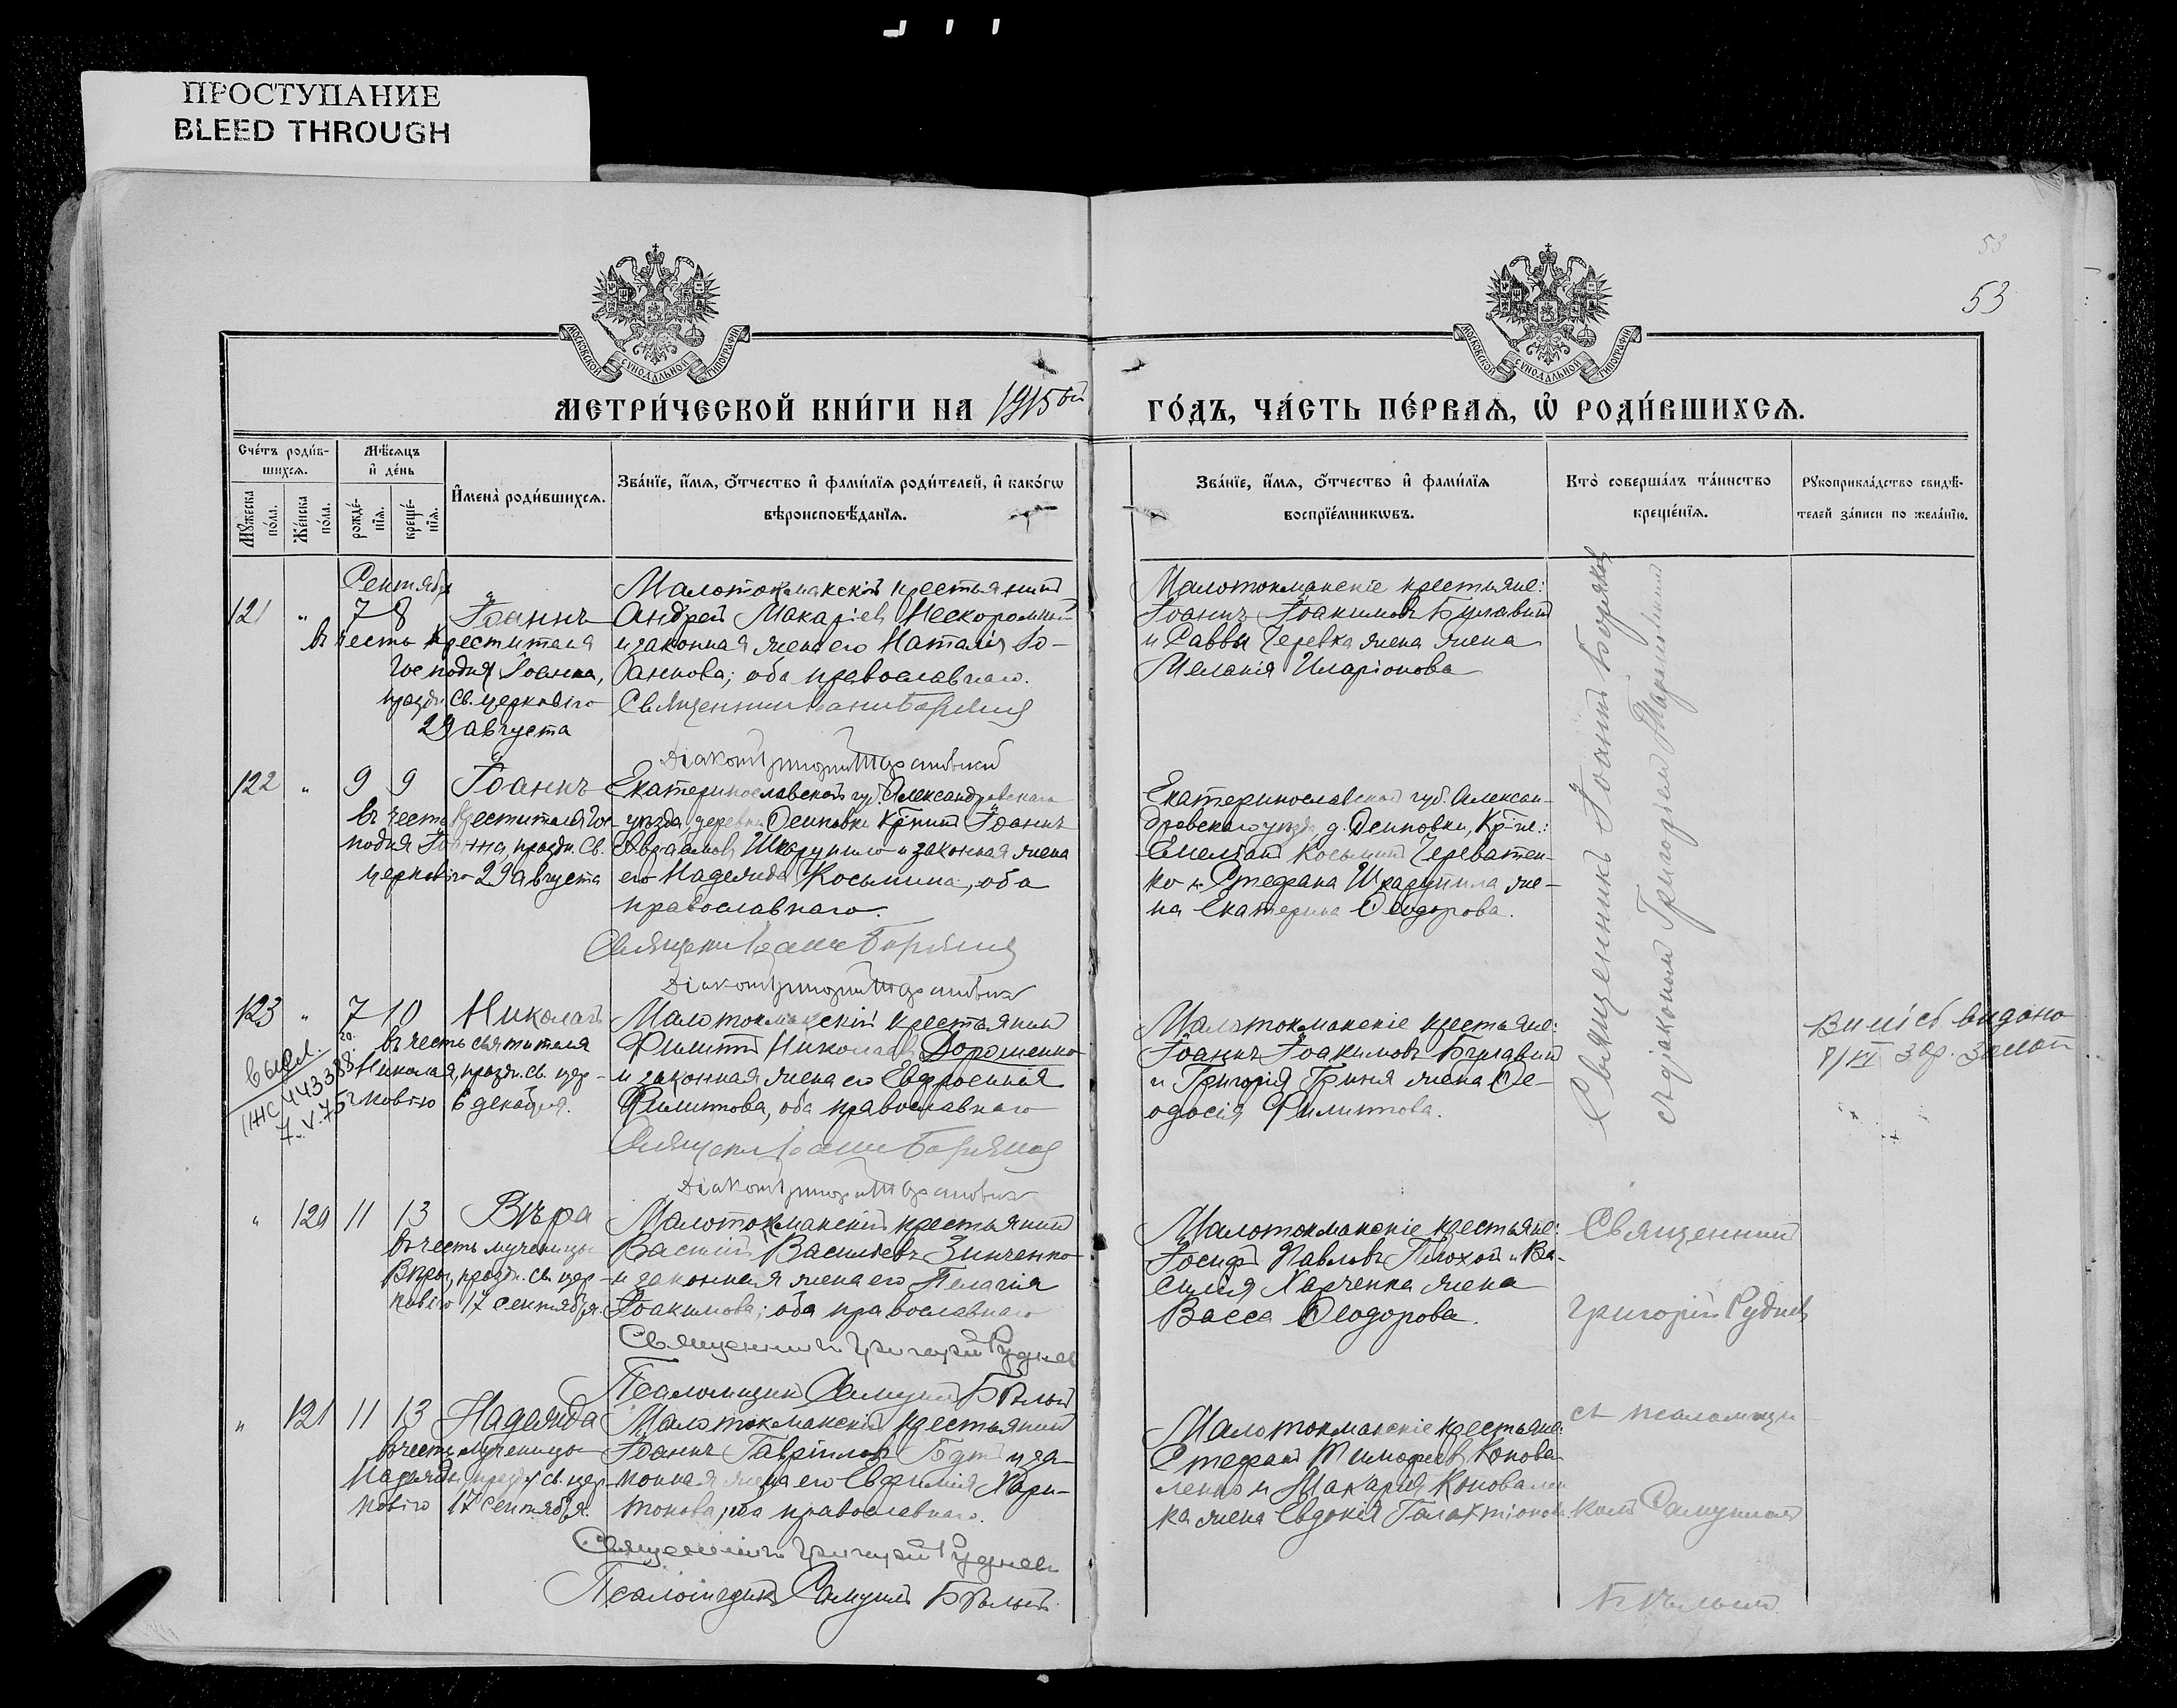 ПРОСТУПАНИЕ
BLEED THROUGH
53
53
МОСКОВСКОЙ СѴНОДАЛЬНОЙ ТИПОГРАФІИ
МОСКОВСКОЙ СѴНОДАЛЬНОЙ ТИПОГРАФІИ
МЕТРИ́ЧЕСКОЙ КНИ́ГИ НА 1915ый ГО́ДЪ, ЧА́СТЬ ПЕ́РВАѦ, Ѡ҆ РОДИ́ВШИХСѦ.
Сче́тъ роди́в-
шихсѧ.
Мѣ́сѧцъ
и҆ де́нь
Мꙋ́жеска по́ла.
Же́нска по́ла.
рожде́-
нїѧ.
креще́-
нїѧ.
И҆мена̀ роди́вшихсѧ.
Зва́нїе, и҆́мѧ, ѻ҆́тчество и҆ фами́лїѧ роди́телей, и҆ како́гѡ
вѣроисповѣ́данїѧ.
Зва́нїе, и҆́мѧ, ѻ҆́тчество и҆ фами́лїѧ
воспрїе́мникѡвъ.
Кто̀ соверша́лъ та́инство
креще́нїѧ.
Рꙋкоприкла́дство свидѣ́-
телей за́писи по жела́нїю.
Сентябрь
121 " 7 8 Іоаннъ
въ честь Крестителя
Господня Іоанна,
праздн. св. церковію
29 августа
Малотокмакскій крестьянинъ
Андрей Макаріевъ Нескоромный
и законная жена его Наталія Іо-
аннова; оба православнаго.
Священникъ Іоаннъ Боряковъ
Діаконъ Григорій
Малотокмакскіе крестьяне:
Іоаннъ Іоакимовъ Булавинъ
и Саввы Черевка жена жена
Меланія Иларіонова
Священникъ Іоаннъ Боряковъ
съ діакономъ Григоріемъ
122 " 9 9 Іоаннъ
въ честь Крестителя Гос-
подня Іоанна, праздн. св.
церковію 29 августа
Екатеринославской губ. Александровскаго
уѣзда, деревни Осиповки кр-нинъ Іоаннъ
Авраамовъ Шкарупило и законная жена
его Надежда Косьмина, оба
православнаго.
Священникъ Іоаннъ Боряковъ
Діаконъ Григорій
Екатеринославской губ. Алексан-
дровскаго уѣзда, д. Осиповки, кр-не:
Емеліанъ Косьминъ Череватен-
ко и Стефана Шкарупила же-
на Екатерина Ѳеодорова.
123 " 7 10 Николай
въ честь святителя
Николая, праздн. св. цер-
ковію 6 декабря.
7.V.75
Малотокмакскій крестьянинъ
Филиппъ Николаевъ Дорошенко
и законная жена его Евфросинія
Филиппова, оба православнаго
Священникъ Іоаннъ Боряковъ
Діаконъ Григорій
Малотокмакскіе крестьяне:
Іоаннъ Іоакимовъ Булавинъ
и Григорія Гриня жена Ѳе-
одосія Филиппова.
видано
" 120 11 13 Вѣра
въ честь мученицы
Вѣры, праздн. св. цер-
ковію 17 сентября.
Малотокмакскій крестьянинъ
Василій Васильевъ Зинченко
и законная жена его Пелагія
Іоакимова; оба православнаго
Священникъ Григорій Рудневъ
Псаломщикъ Самуилъ Бѣлый
Малотокмакскіе крестьяне:
Іосифъ Павловъ Плохой и Ва-
силія Харченка жена
Васса Ѳеодорова.
Священникъ
Григорій Рудневъ
съ псаломщи-
комъ Самуиломъ
Бѣлымъ
" 121 11 13 Надежда
въ честь мученицы
Надежды, праздн. св. цер-
ковію 17 сентября.
Малотокмакскій крестьянинъ
Іоаннъ Гавріиловъ Бутъ и за-
конная жена его Евфимія Хари-
тонова; оба православнаго.
Священникъ Григорій Рудневъ
Псаломщикъ Самуилъ Бѣлый.
Малотокмакскіе крестьяне:
Стефанъ Тимофеевъ Конова-
ленко и Макарія Коновален-
ка жена Евдокія Галактіонова